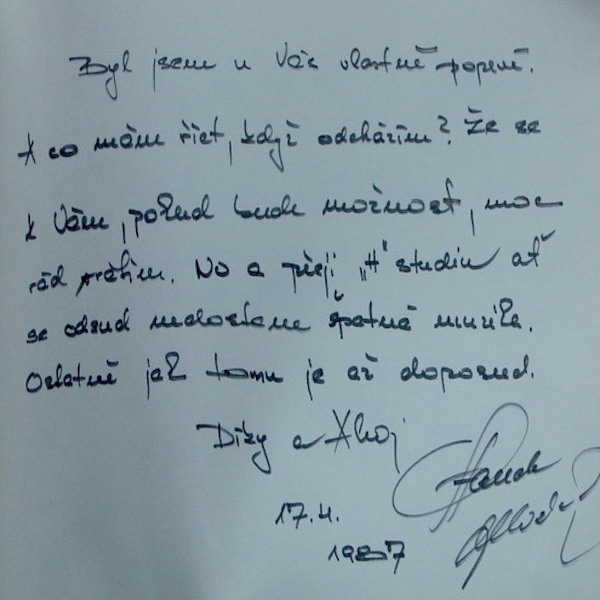 Byl jsem u Vás vlastně poprvé.
A co mám říct, když odcházím? Že se
k Vám, pokud bude možnost, moc
rád vrátím. No a přeji „H" studiu ať
se odsud nedostane špatná muzika.
Ostatně jak tomu je až doposud.
Díky a Ahoj
17.4.
1987